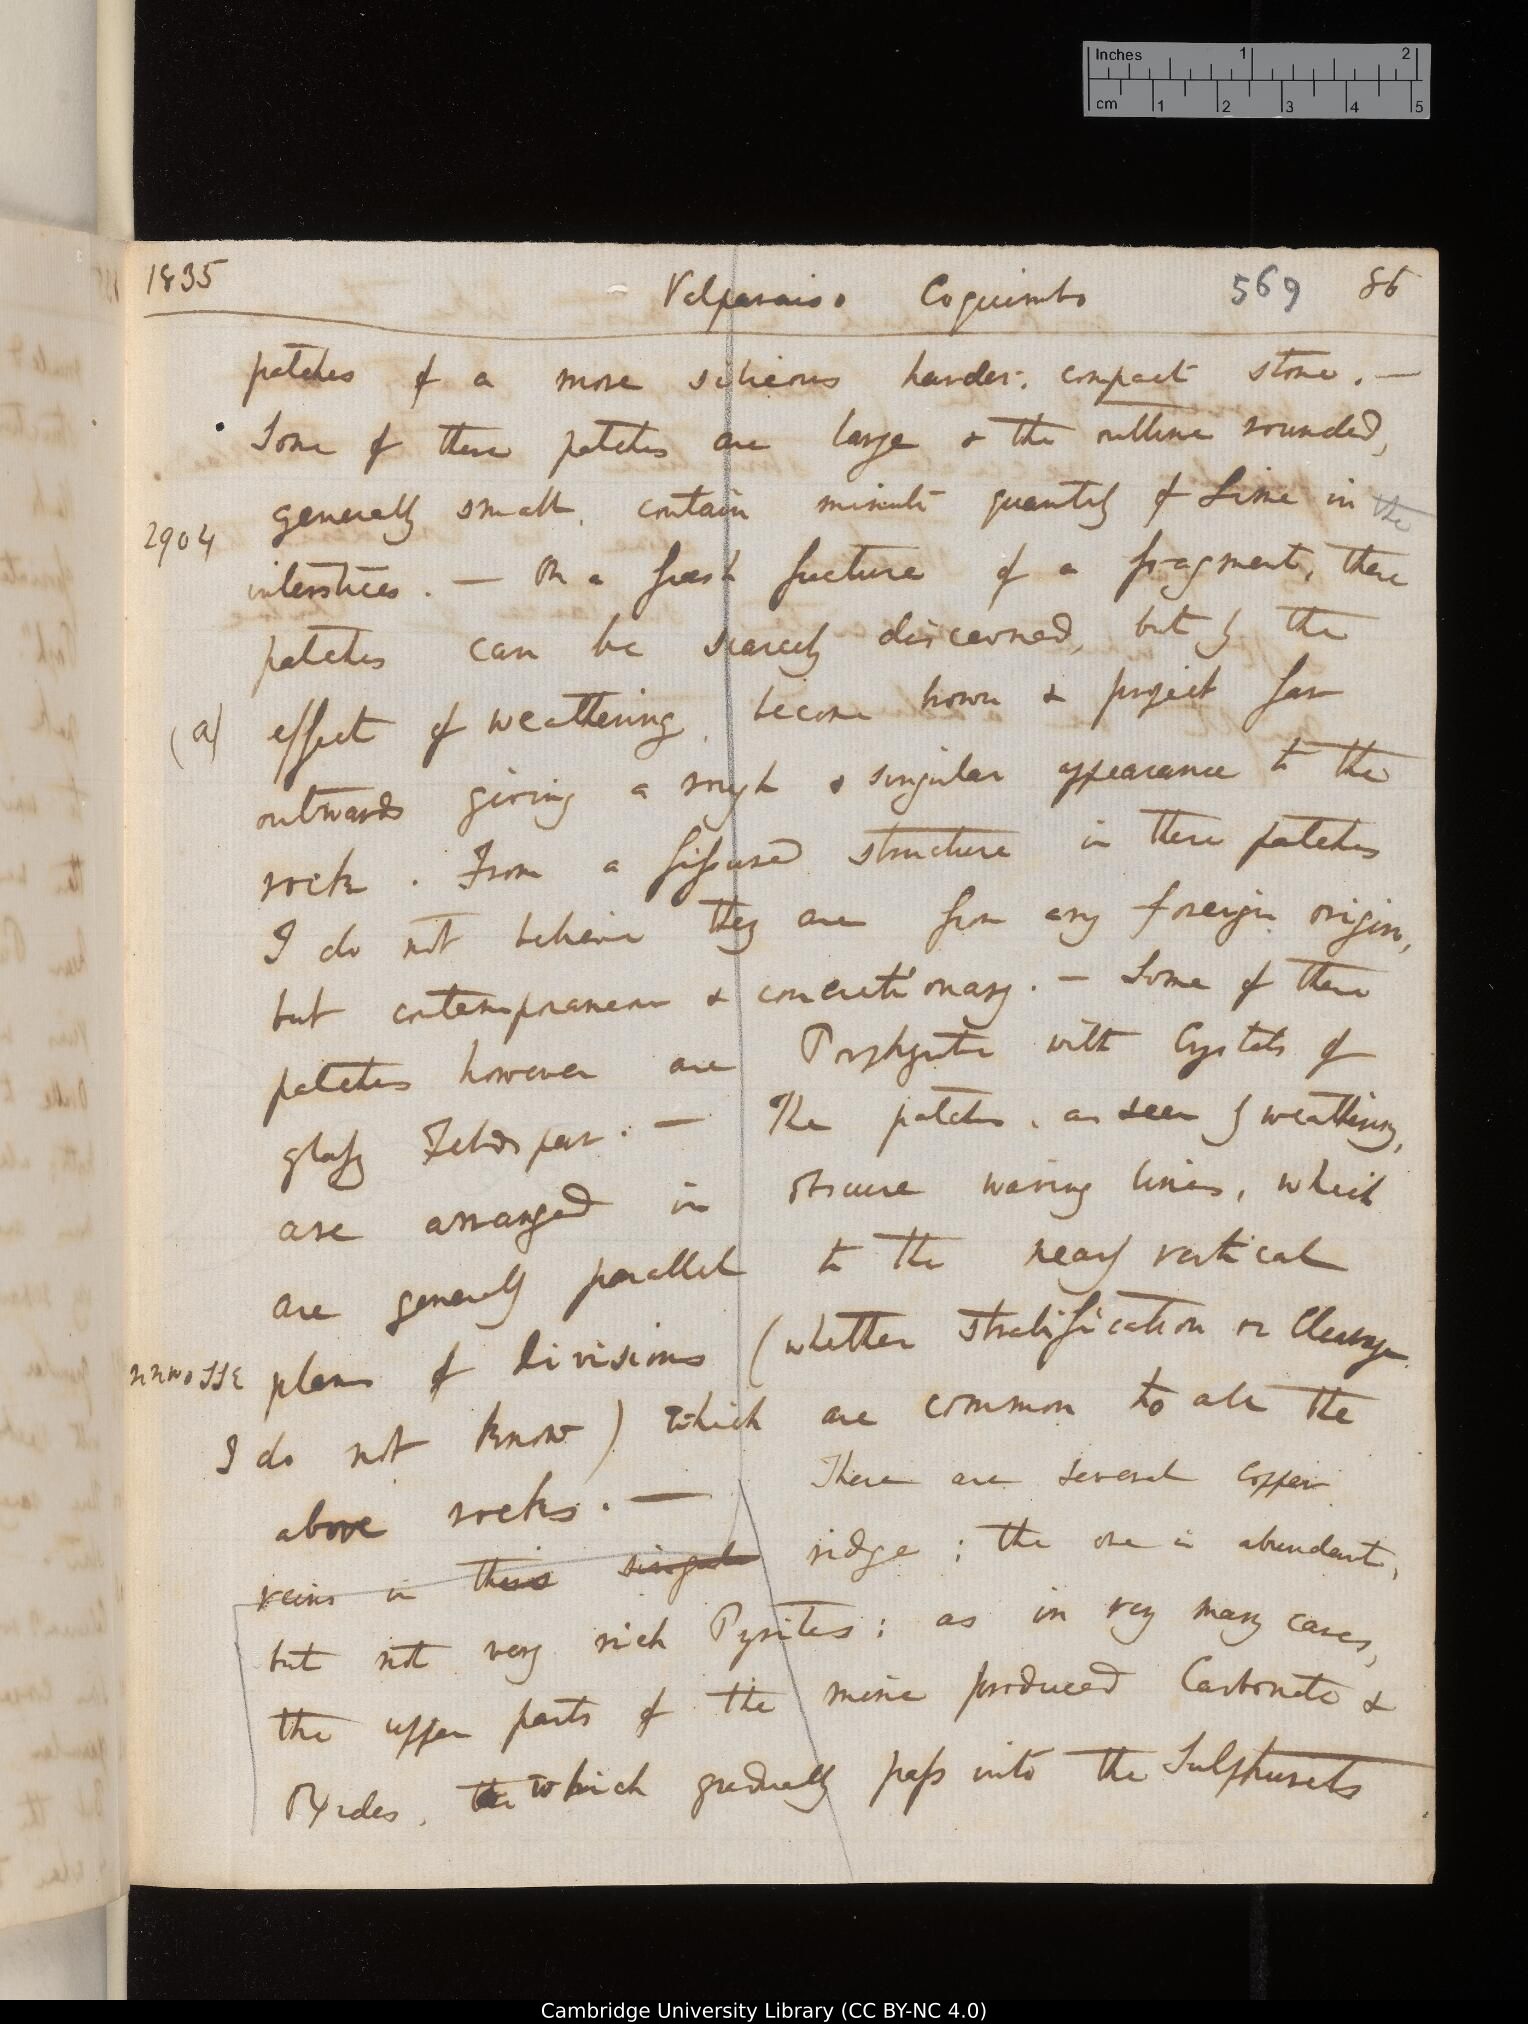 Inches 1 2
cm 1 2 3 4 5
1835 Valparaiso Coquimbo 569 86
patches of a more siliceous harder, compact stone. —
Some of these patches are large & the outline rounded,
generally small, contain minute quantity of Lime in the
2904
interstices. — On a fresh fracture of a fragment, these
patches can be scarcely discerned, but by the
(a) effect of weathering, become brown & project far
outwards giving a rough & singular appearance to the
rock. From a fissured structure in these patches
I do not believe they are from any foreign origin,
but contemporaneous & concretionary. — Some of these
patches however are Porphyritic with Crystals of
glassy Feldspar. — The patches, as seen by weathering,
are arranged in obscure waving lines, which
are generally parallel to the nearly vertical
NNWoSSE planes of divisions (whether stratification or Cleavage
I do not know) which are common to all the
above rocks. — There are several copper
veins in this singular ridge; the ore is abundant,
but not very rich Pyrites: as in very many cases,
the upper parts of the mine produced Carbonate &
Oxides, the which gradually pass into the Sulphurets
Cambridge University Library (CC BY-NC 4.0)